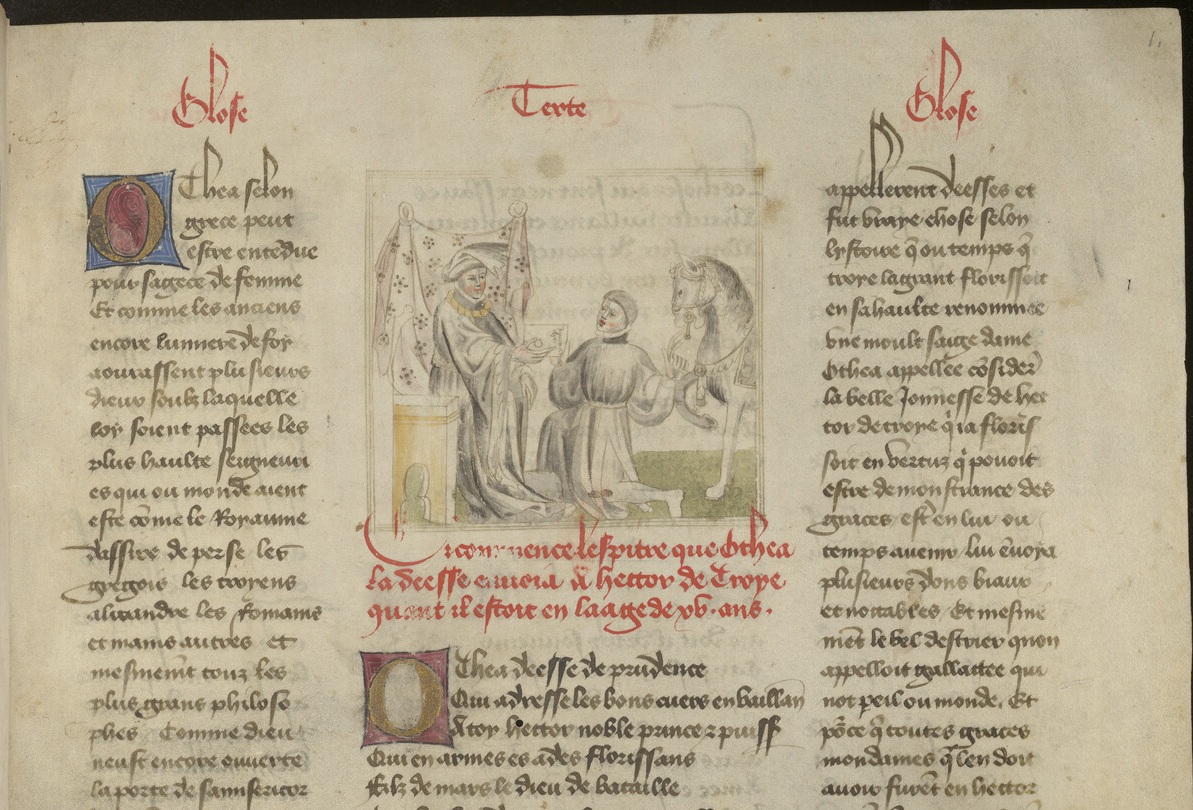 Glose
Othea selon
grece peut
estre entēdue
pour sagece de femme
Et comme les anciens
encore lumiere de foy
aourassent plusieurs
dieux soubz laquelle
loy soient passees les
plus haulte seigneuri
es qui ou monde aient
este cōme le Royaume
dassire de perse les
gregois les troyens
alixandre les Romains
et mains autres et
mesmemēt touz les
plus grans philoso
phes Comme dieu
neust encore ouverte
la porte de sa misericor
Texte
Cy commence lespitre que Othea
la deesse envoia A hector de Troye
quant il estoit en laage de xv. ans.
Othea deesse de prudence
Qui adresse les bons cuers en vaillan
A toy hector noble prince z puiss
Qui en armes es ades florissans
Filz de mars le dieu de bataille
Glose
appellerent deesses et
fut vraye chose selon
lystoire q̄ ou temps q̄
troye la grant florissoit
en sa haulte renommee
vne moult saige dame
Othea appellee cōsider̄
la belle Jonnesse de hec
tor de troye q̇ ia floris
soit en vertuz q̇ pouoit
estre demonstrance des
graces est' en lui ou
temps avenir lui ēvoya
plusieurs dons biaux
et nottables Et mesme
mēt le bel destrier quon
appelloit gallattee qui
not peil ou monde. Et
pōce q̄ toutes graces
mondaines q̄ len doit
avoir furēt en hector